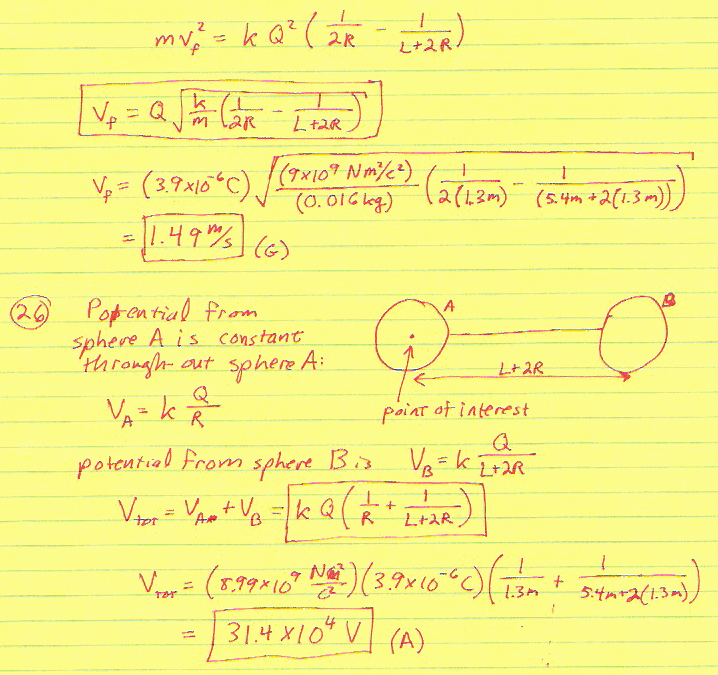 m v_f² = k Q² ( 1/2R − 1/L+2R )
V_f = Q √( k/m ( 1/2R − 1/L+2R ) )
V_f = (3.9x10⁻⁶C) √( (9x10⁹ Nm²/c²)/(0.016kg) ( 1/2(1.3m) − 1/(5.4m + 2(1.3m)) ) )
= 1.49 m/s (G)
26 Potential from
sphere A is constant
through out sphere A:
A
B
L+2R
V_A = k Q/R
point of interest
potential from sphere B is V_B = k Q/L+2R
V_tot = V_A + V_B = k Q ( 1/R + 1/L+2R )
V_tot = (8.99x10⁹ Nm²/C²)(3.9x10⁻⁶C)( 1/1.3m + 1/5.4m+2(1.3m) )
= 31.4 x10⁴ V (A)